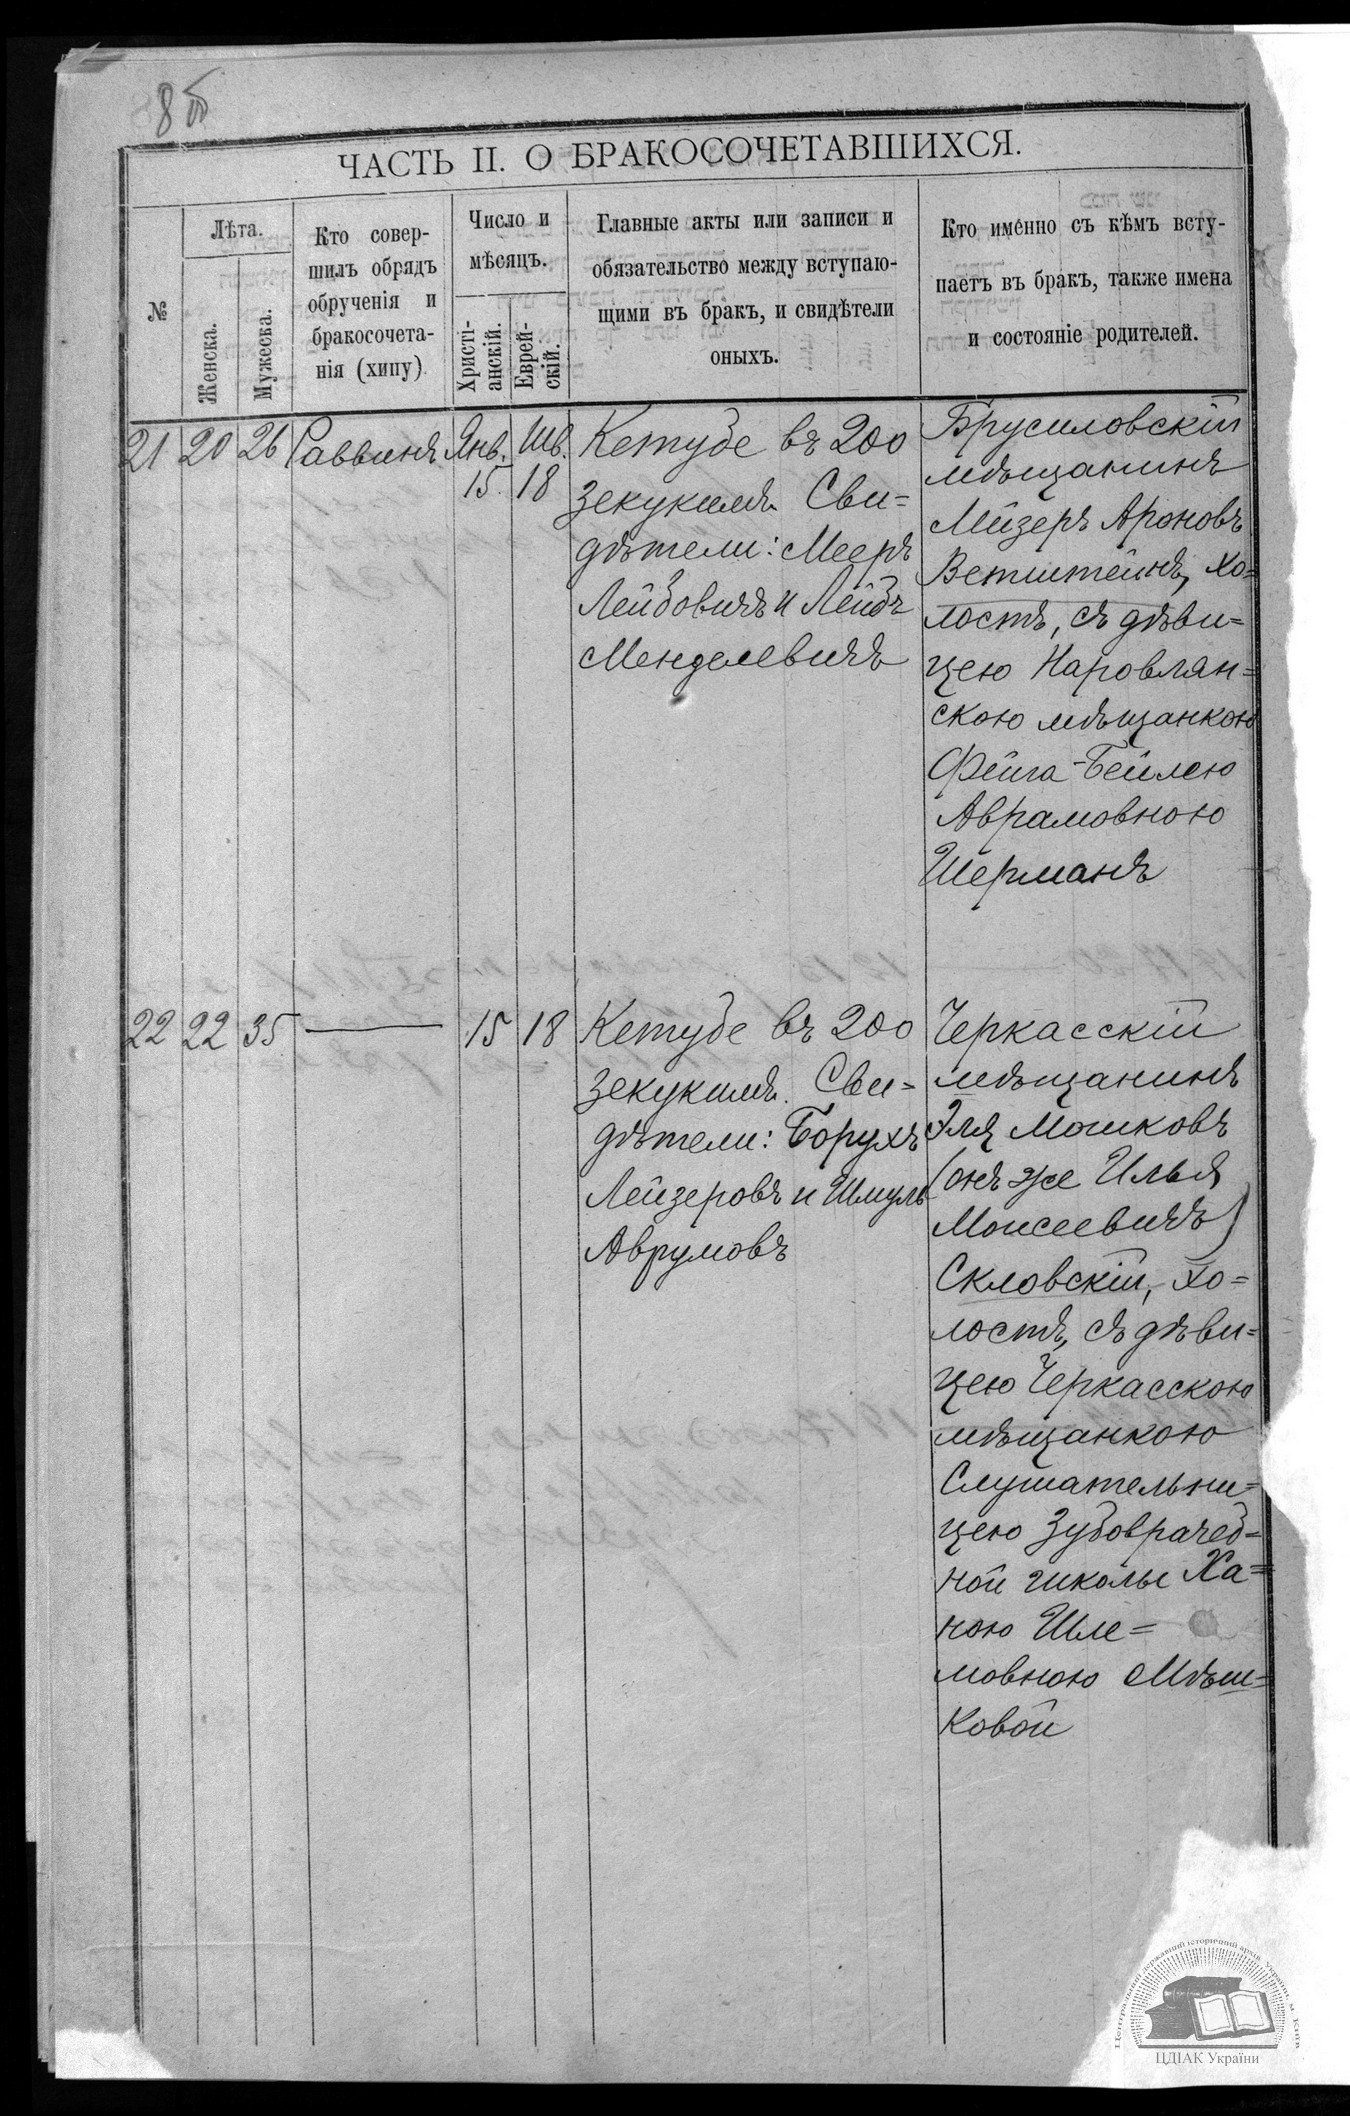 8
ЧАСТЬ II. О БРАКОСОЧЕТАВШИХСЯ.
№
Лѣта.
Женска.
Мужеска.
Кто совер-
шилъ обрядъ
обрученія и
бракосочета-
нія (хипу)
Число и
мѣсяцъ.
Христі-
анскій.
Еврей-
скій.
Главные акты или записи и
обязательство между вступаю-
щими въ бракъ, и свидѣтели
оныхъ.
Кто имѣнно съ кѣмъ всту-
паетъ въ бракъ, также имена
и состояніе родителей.
21 20 26 Раввинъ Янв. Шв.
15. 18
Кетубе въ 200
зекукимъ. Сви=
дѣтели: Мееръ
Лейбовичъ и Лейбъ
Менделевичъ
Брусиловскій
мѣщанинъ
Лейзеръ Ароновъ
Ветштейнъ, хо=
лостъ, съ дѣви=
цею Наровлян=
скою мѣщанкою
Фейга-Бейлею
Аврамовною
Шерманъ
22 22 35 15 18
Кетубе въ 200
зекукимъ. Сви=
дѣтели: Борухъ
Лейзеровъ и Шмуль
Аврумовъ
Черкасскій
мѣщанинъ
Эля Мошковъ
(онъ же Илья
Моисеевичъ)
Скловскій, хо=
лостъ, съ дѣви=
цею Черкасскою
мѣщанкою
Слушательни=
цею Зубоврачеб=
ной школы Ха=
ною Шле=
мовною Мѣш=
ковой
Центральний державний історичний архів України, м. Київ
ЦДІАК України